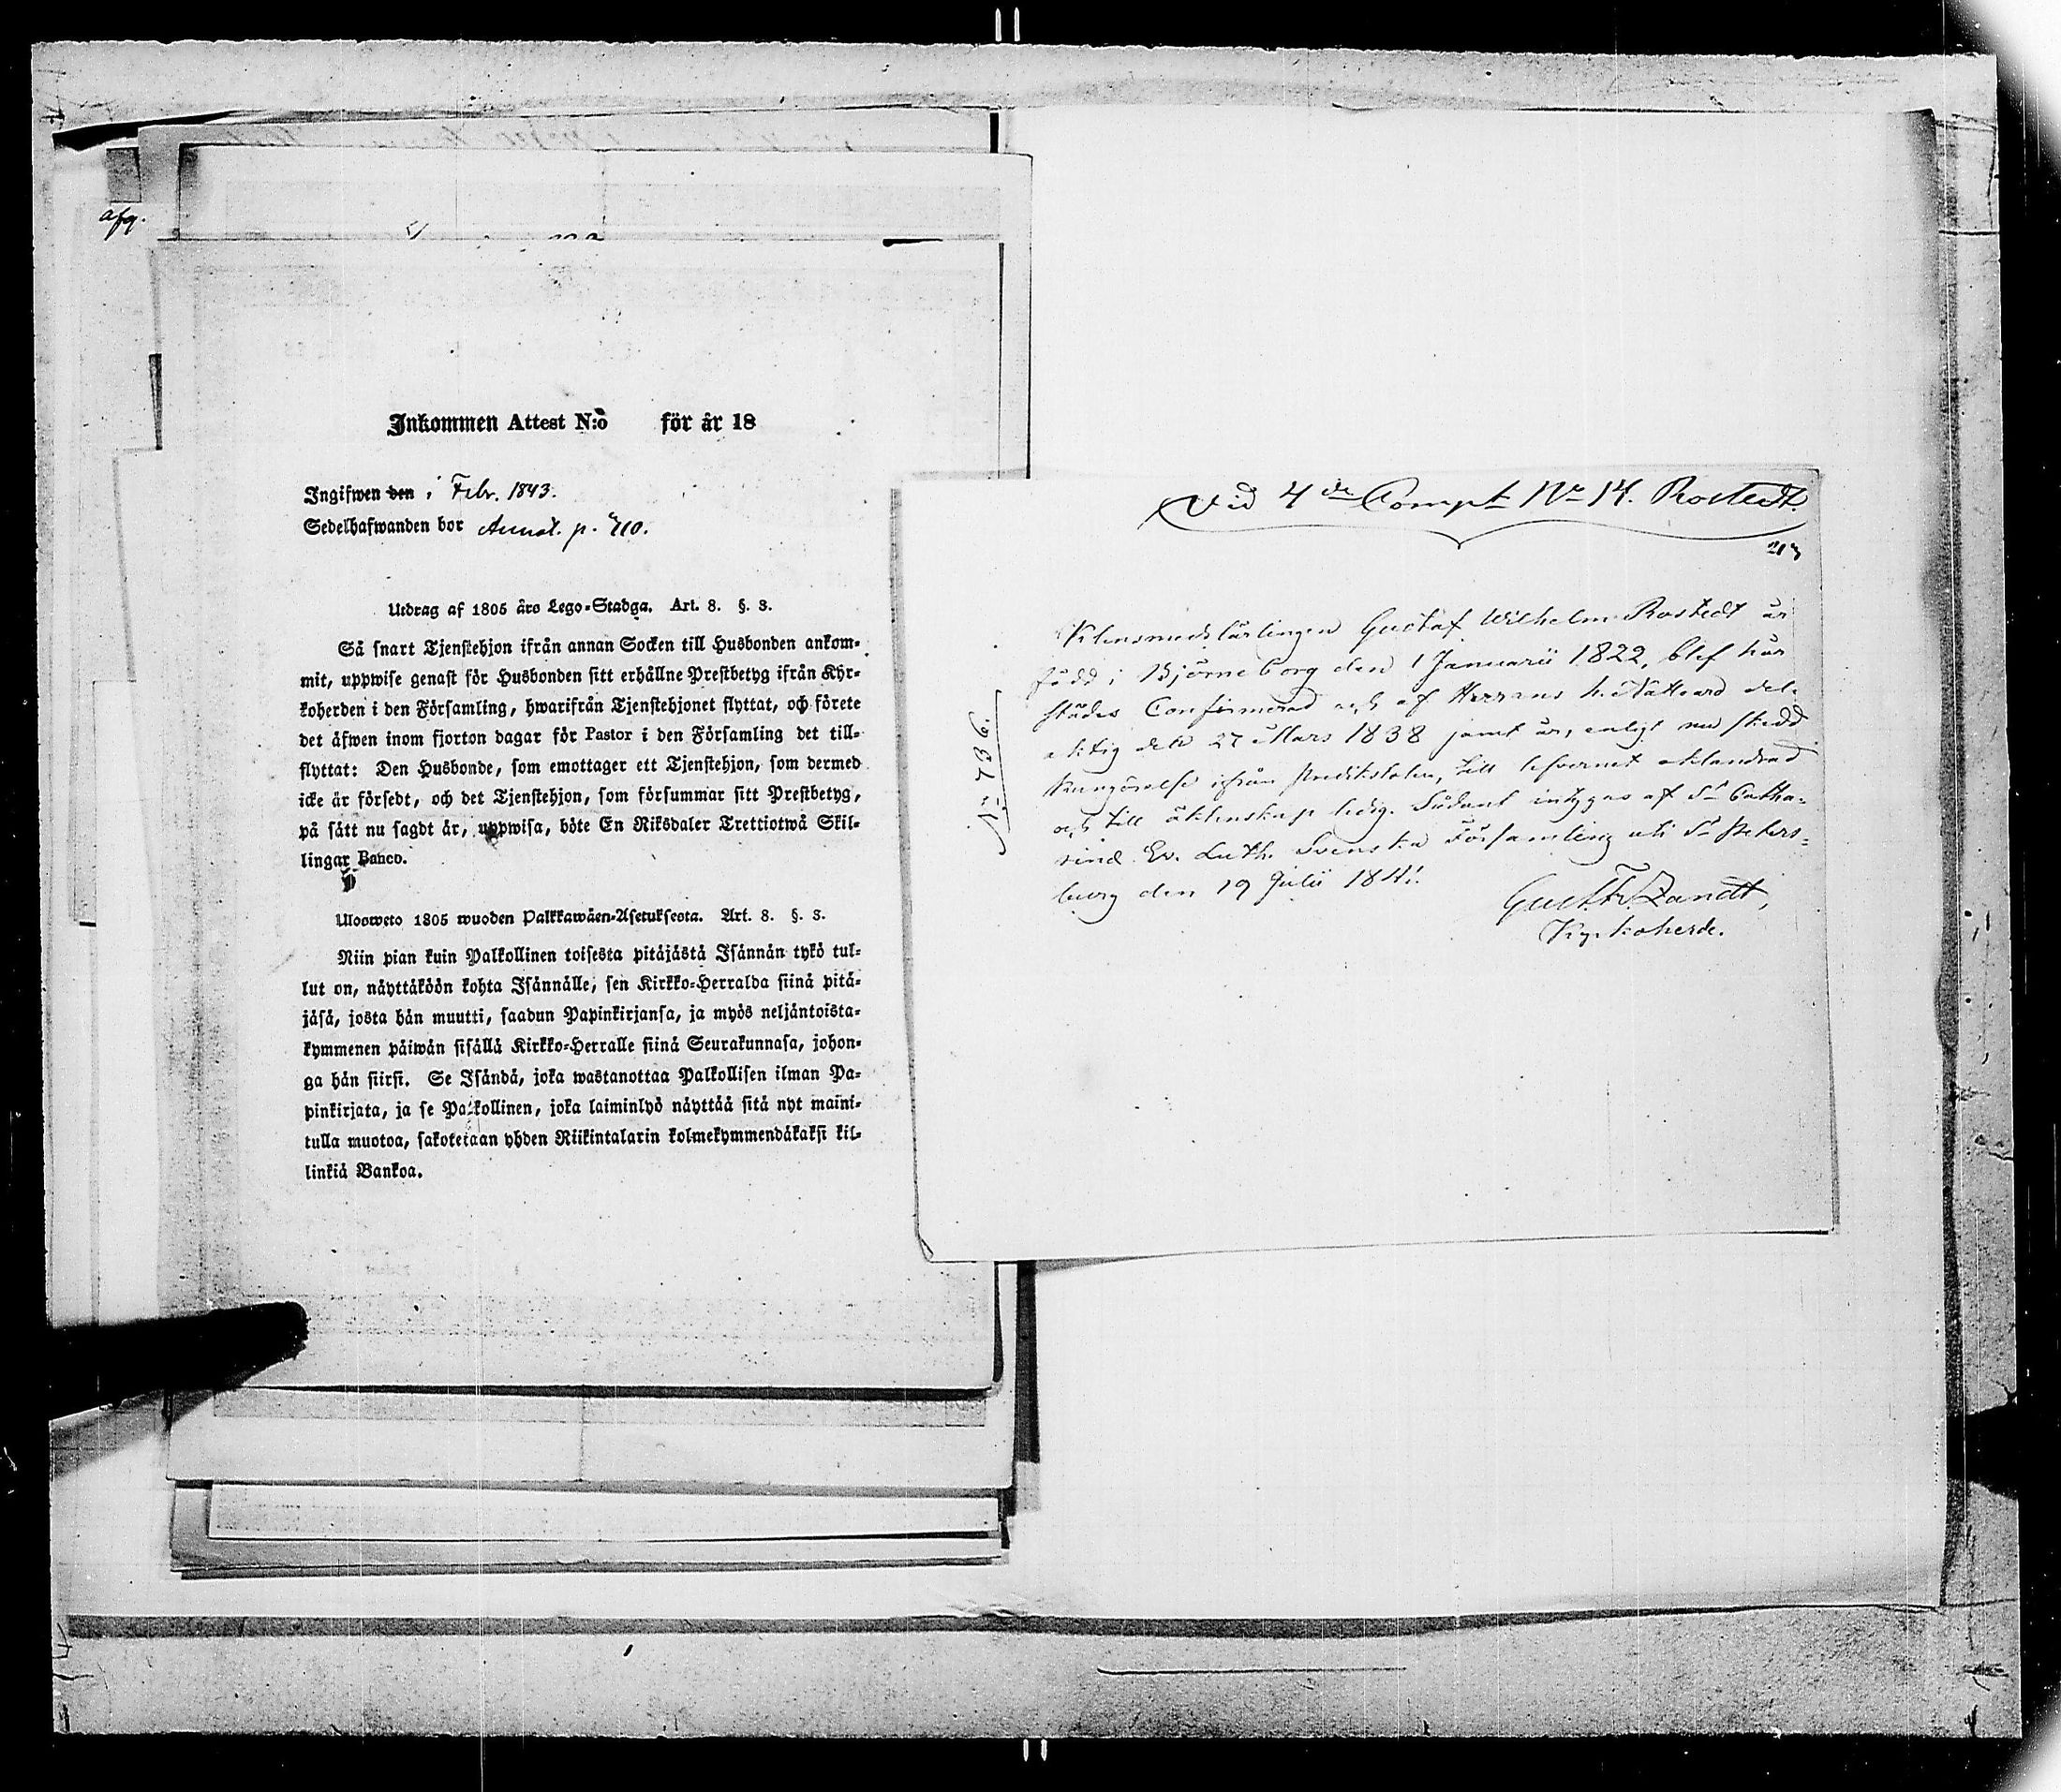 afg.
Inkommen Attest N:o för år 18
Ingifwen den i Febr. 1843.
Sedelhafwanden bor p. 710.
Utdrag af 1805 års Lego-Stadga. Art. 8. §. 3.
Så snart Tjenstehjon ifrån annan Socken till Husbonden ankom-
mit, uppwise genast för Husbonden sitt erhållne Prestbetyg ifrån Kyr-
koherden i den Församling, hwarifrån Tjenstehjonet flyttat, och förete
det äfwen inom fjorton dagar för Pastor i den Församling det till-
flyttat: Den Husbonde, som emottager ett Tjenstehjon, som dermed
icke är försedt, och det Tjenstehjon, som försummar sitt Prestbetyg,
på sätt nu sagdt är, uppwisa, böte En Riksdaler Trettiotwå Skil-
lingar Banco.
Uloosweto 1805 wuoden Palkkawäen-Asetuksesta. Art. 8. §. 3.
Niin pian kuin Palkollinen toisesta pitäjästä Isännän tykö tul-
lut on, näyttäköön kohta Isännälle, sen Kirkko-Herralda siinä pitä-
jäsä, josta hän muutti, saadun Papinkirjansa, ja myös neljäntoista-
kymmenen päiwän sisällä Kirkko-Herralle siinä Seurakunnasa, johon-
ga hän siirsi. Se Isändä, joka wastanottaa Palkollisen ilman Pa-
pinkirjata, ja se Palkollinen, joka laiminlyö näyttää sitä nyt maini-
tulla muotoa, sakotetaan yhden Riikintalarin kolmekymmendäkaksi kil-
linkiä Bankoa.
Vid 4de Compt No 14. Rostedt.
213
No 736.
Klensmedslärlingen Gustaf Wilhelm Rostedt är
född i Björneborg den 1 Januarii 1822, blef här
städes Confirmerad och af Herrans h. Nattvard del-
aktig den 27 Mars 1838 samt är, enligt nu skedd
kungörelse ifrån Predikstolen, till lefvernet oklandrad
och till äktenskap ledig. Sådant intygas af St Catha-
rinæ Ev. Luth. Svenska Församling uti St Peters-
burg den 19 Julii 1841.
Gust. Fr. Zandt,
Kyrkoherde.